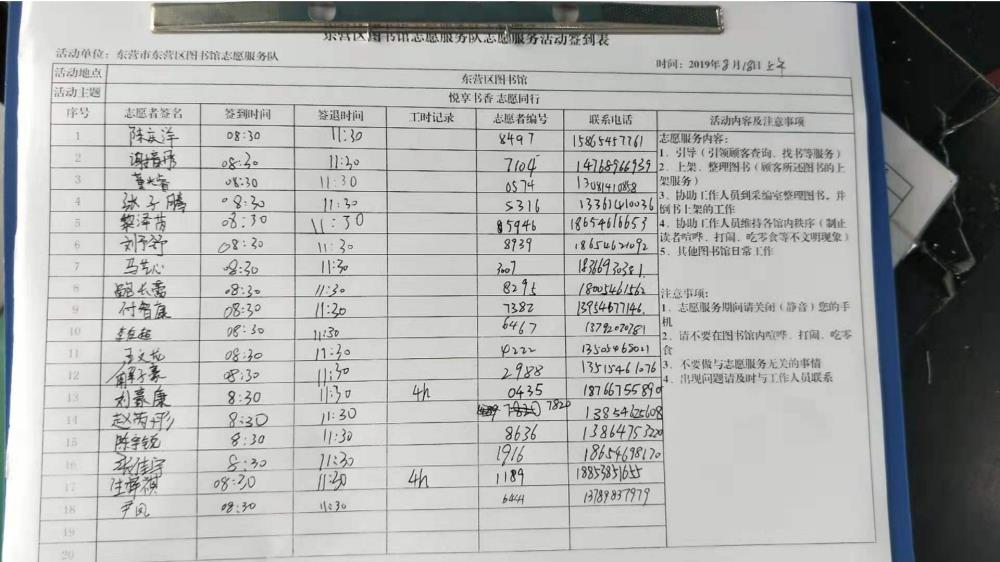 东营区图书馆志愿服务队志愿服务活动签到表
活动单位：东营市东营区图书馆志愿服务队 时间：2019年8月18日上午
活动地点 东营区图书馆
活动主题 悦享书香 志愿同行
序号 志愿者签名 签到时间 签退时间 工时记录 志愿者编号 联系电话 活动内容及注意事项
1 08:30 11:30 8497 15865457761
2 08:30 11:30 7104 14768966939
3 08:30 11:30 0574 13081410858
4 张子腾 08:30 11:30 5316 13361410036
5 黎泽茵 08:30 11:30 85946 18654616653
6 刘予舒 08:30 11:30 8939 18654621092
7 08:30 11:30 3007
8 08:30 11:30 8295 18005461562
9 付智康 08:30 11:30 7382 13954677146
10 08:30 11:30 6467
11 08:30 11:30 4222
12 08:30 11:30 2988 13515461076
13 刘嘉康 8:30 11:30 4h 0435 18766755890
14 8:30 11:30 7820 13854625608
15 陈宇锐 8:30 11:30 8636 13864753220
16 张佳宇 8:30 11:30 1916 18654698170
17 08:30 11:30 4h 1189 18853851655
18 尹凤 08:30 11:30 13789837979
19
20
志愿服务内容：
1、引导（引领顾客查询、找书等服务）
2、上架、整理图书（顾客所还图书的上
架服务）
3、协助工作人员到采编室整理图书，并
倒书上架的工作
4、协助工作人员维持各馆内秩序（制止
读者喧哗、打闹、吃零食等不文明现象）
5、其他图书馆日常工作
注意事项：
1、志愿服务期间请关闭（静音）您的手
机
2、请不要在图书馆内喧哗、打闹、吃零
食
3、不要做与志愿服务无关的事情
4、出现问题请及时与工作人员联系